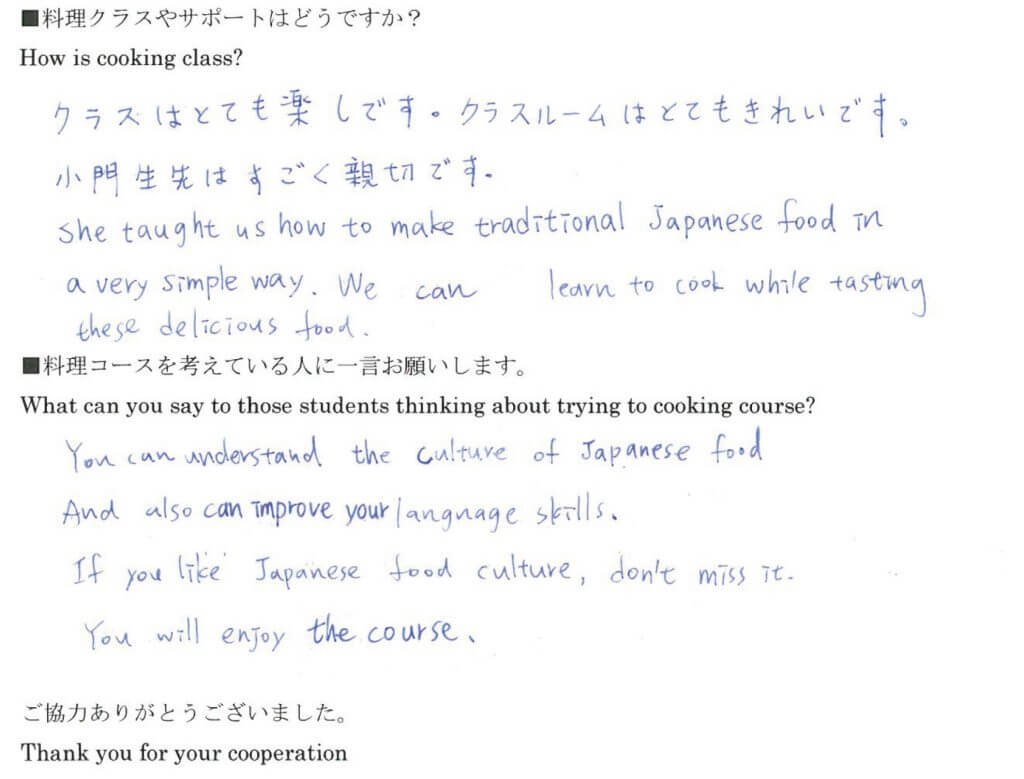 ■料理クラスやサポートはどうですか?
How is cooking class?
クラスはとても楽しです。クラスルームはとてもきれいです。
小門生先はすごく親切です。
She taught us how to make traditional Japanese food in
a very simple way. We can learn to cook while tasting
these delicious food.
■料理コースを考えている人に一言お願いします。
What can you say to those students thinking about trying to cooking course?
You can understand the culture of Japanese food
And also can improve your langnage skills.
If you like Japanese food culture, don't miss it.
You will enjoy the course、
ご協力ありがとうございました。
Thank you for your cooperation